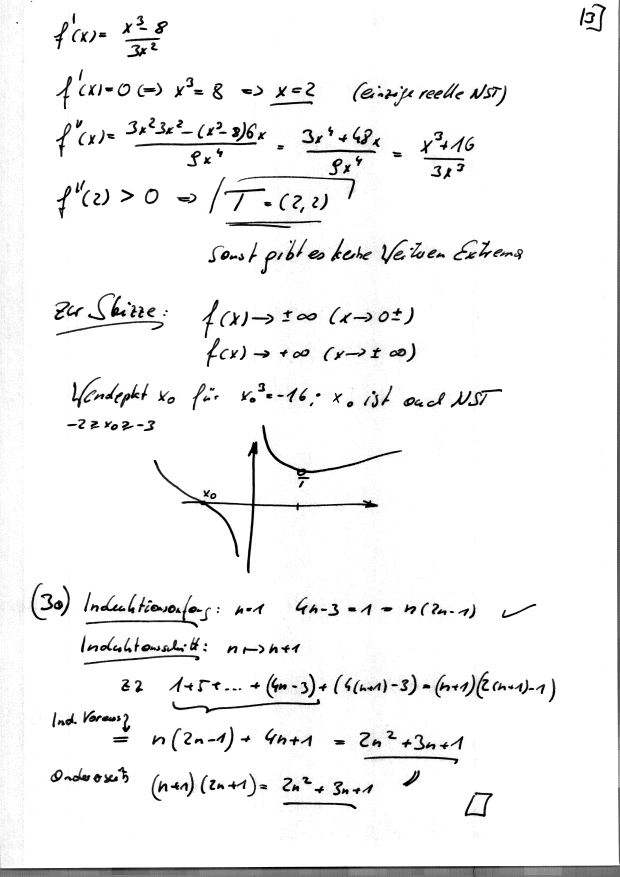 13
f'(x) = (x³-8)/(3x²)
f'(x)=0 (=) x³=8 => x=2 (einzige reelle NST)
f''(x) = (3x²3x² - (x³-8)6x)/(9x⁴) = (3x⁴+48x)/(9x⁴) = (x³+16)/(3x³)
f''(2) > 0 => T = (2,2)
sonst gibt es keine Extrema
Zur Skizze: f(x) → ±∞ (x→0±)
f(x) → +∞ (x→ ±∞)
Wendepkt x₀ für x₀³=-16; x₀ ist auch NST
-2 ≥ x₀ ≥ -3
x₀
T
(30) Induktionsanfang: n=1 4n-3 = 1 = n(2n-1) ✓
Induktionsschritt: n ↦ n+1
zz 1+5+...+(4n-3)+(4(n+1)-3) = (n+1)(2(n+1)-1)
Ind. Vorauss
= n(2n-1) + 4n+1 = 2n²+3n+1
Andererseits (n+1)(2n+1) = 2n²+3n+1